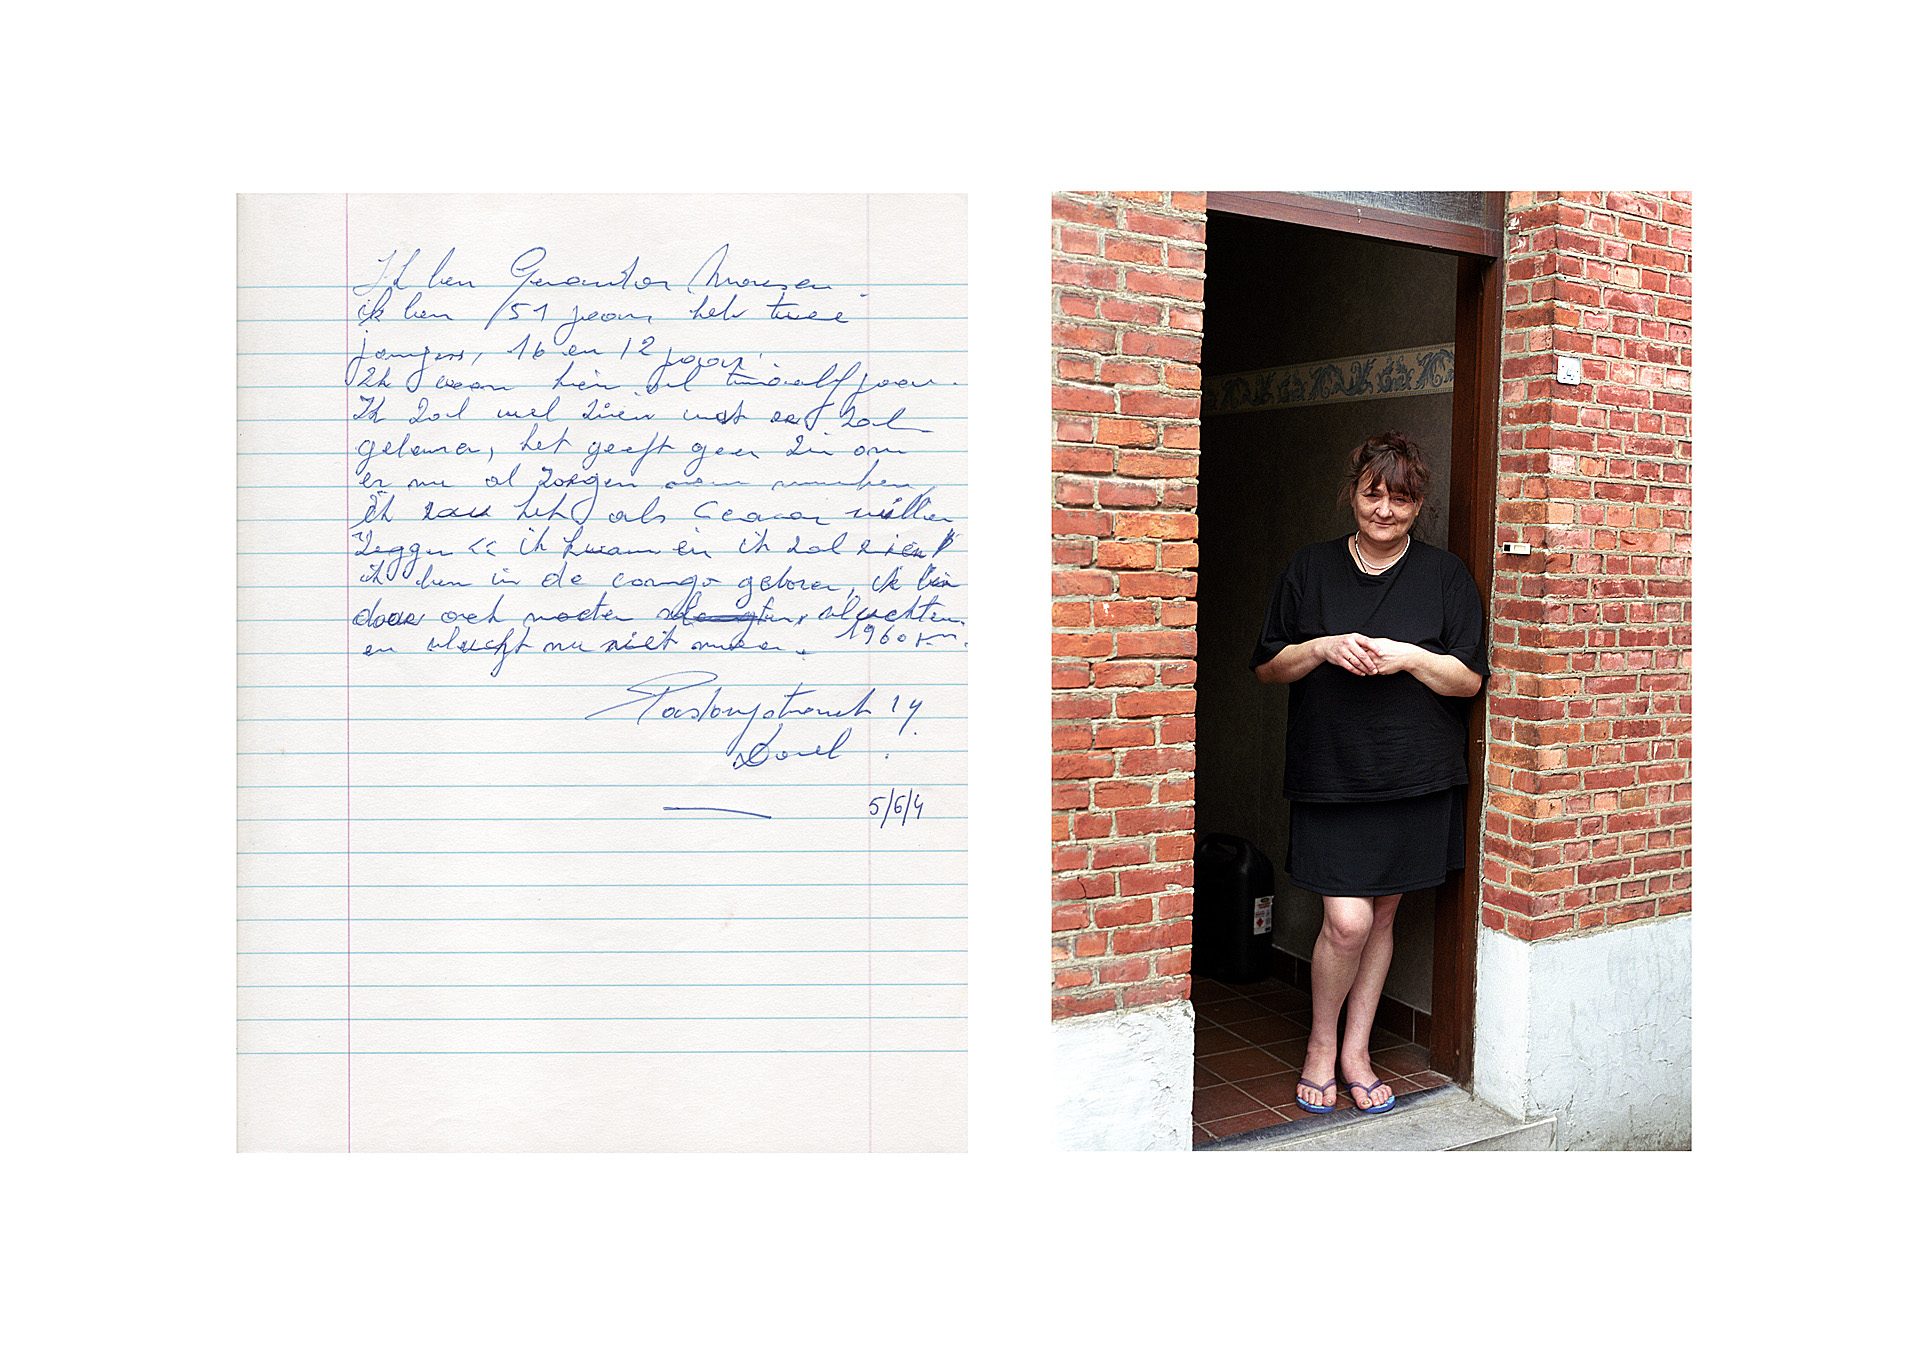 Ik ben
ik ben 51 jaar, heb twee
jongens, 16 en 12 jaar.
Ik woon hier al twaalf jaar.
Ik zal wel zien wat er zal
gebeuren, het geeft geen zin om
er nu al zorgen maken
Ik zou het als Ceasar willen
zeggen << ik kwam en ik zal zien
ik ben in de congo geboren, ik ben
daar ook moeten vluchten
en vlucht nu niet meer. 1960
Pastorijstraat 14
Doel.
5/6/4